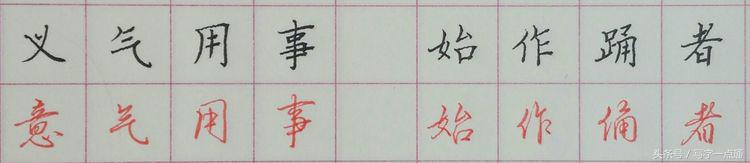 义气用事 始作踊者
意气用事 始作俑者
头条号/写字一点通